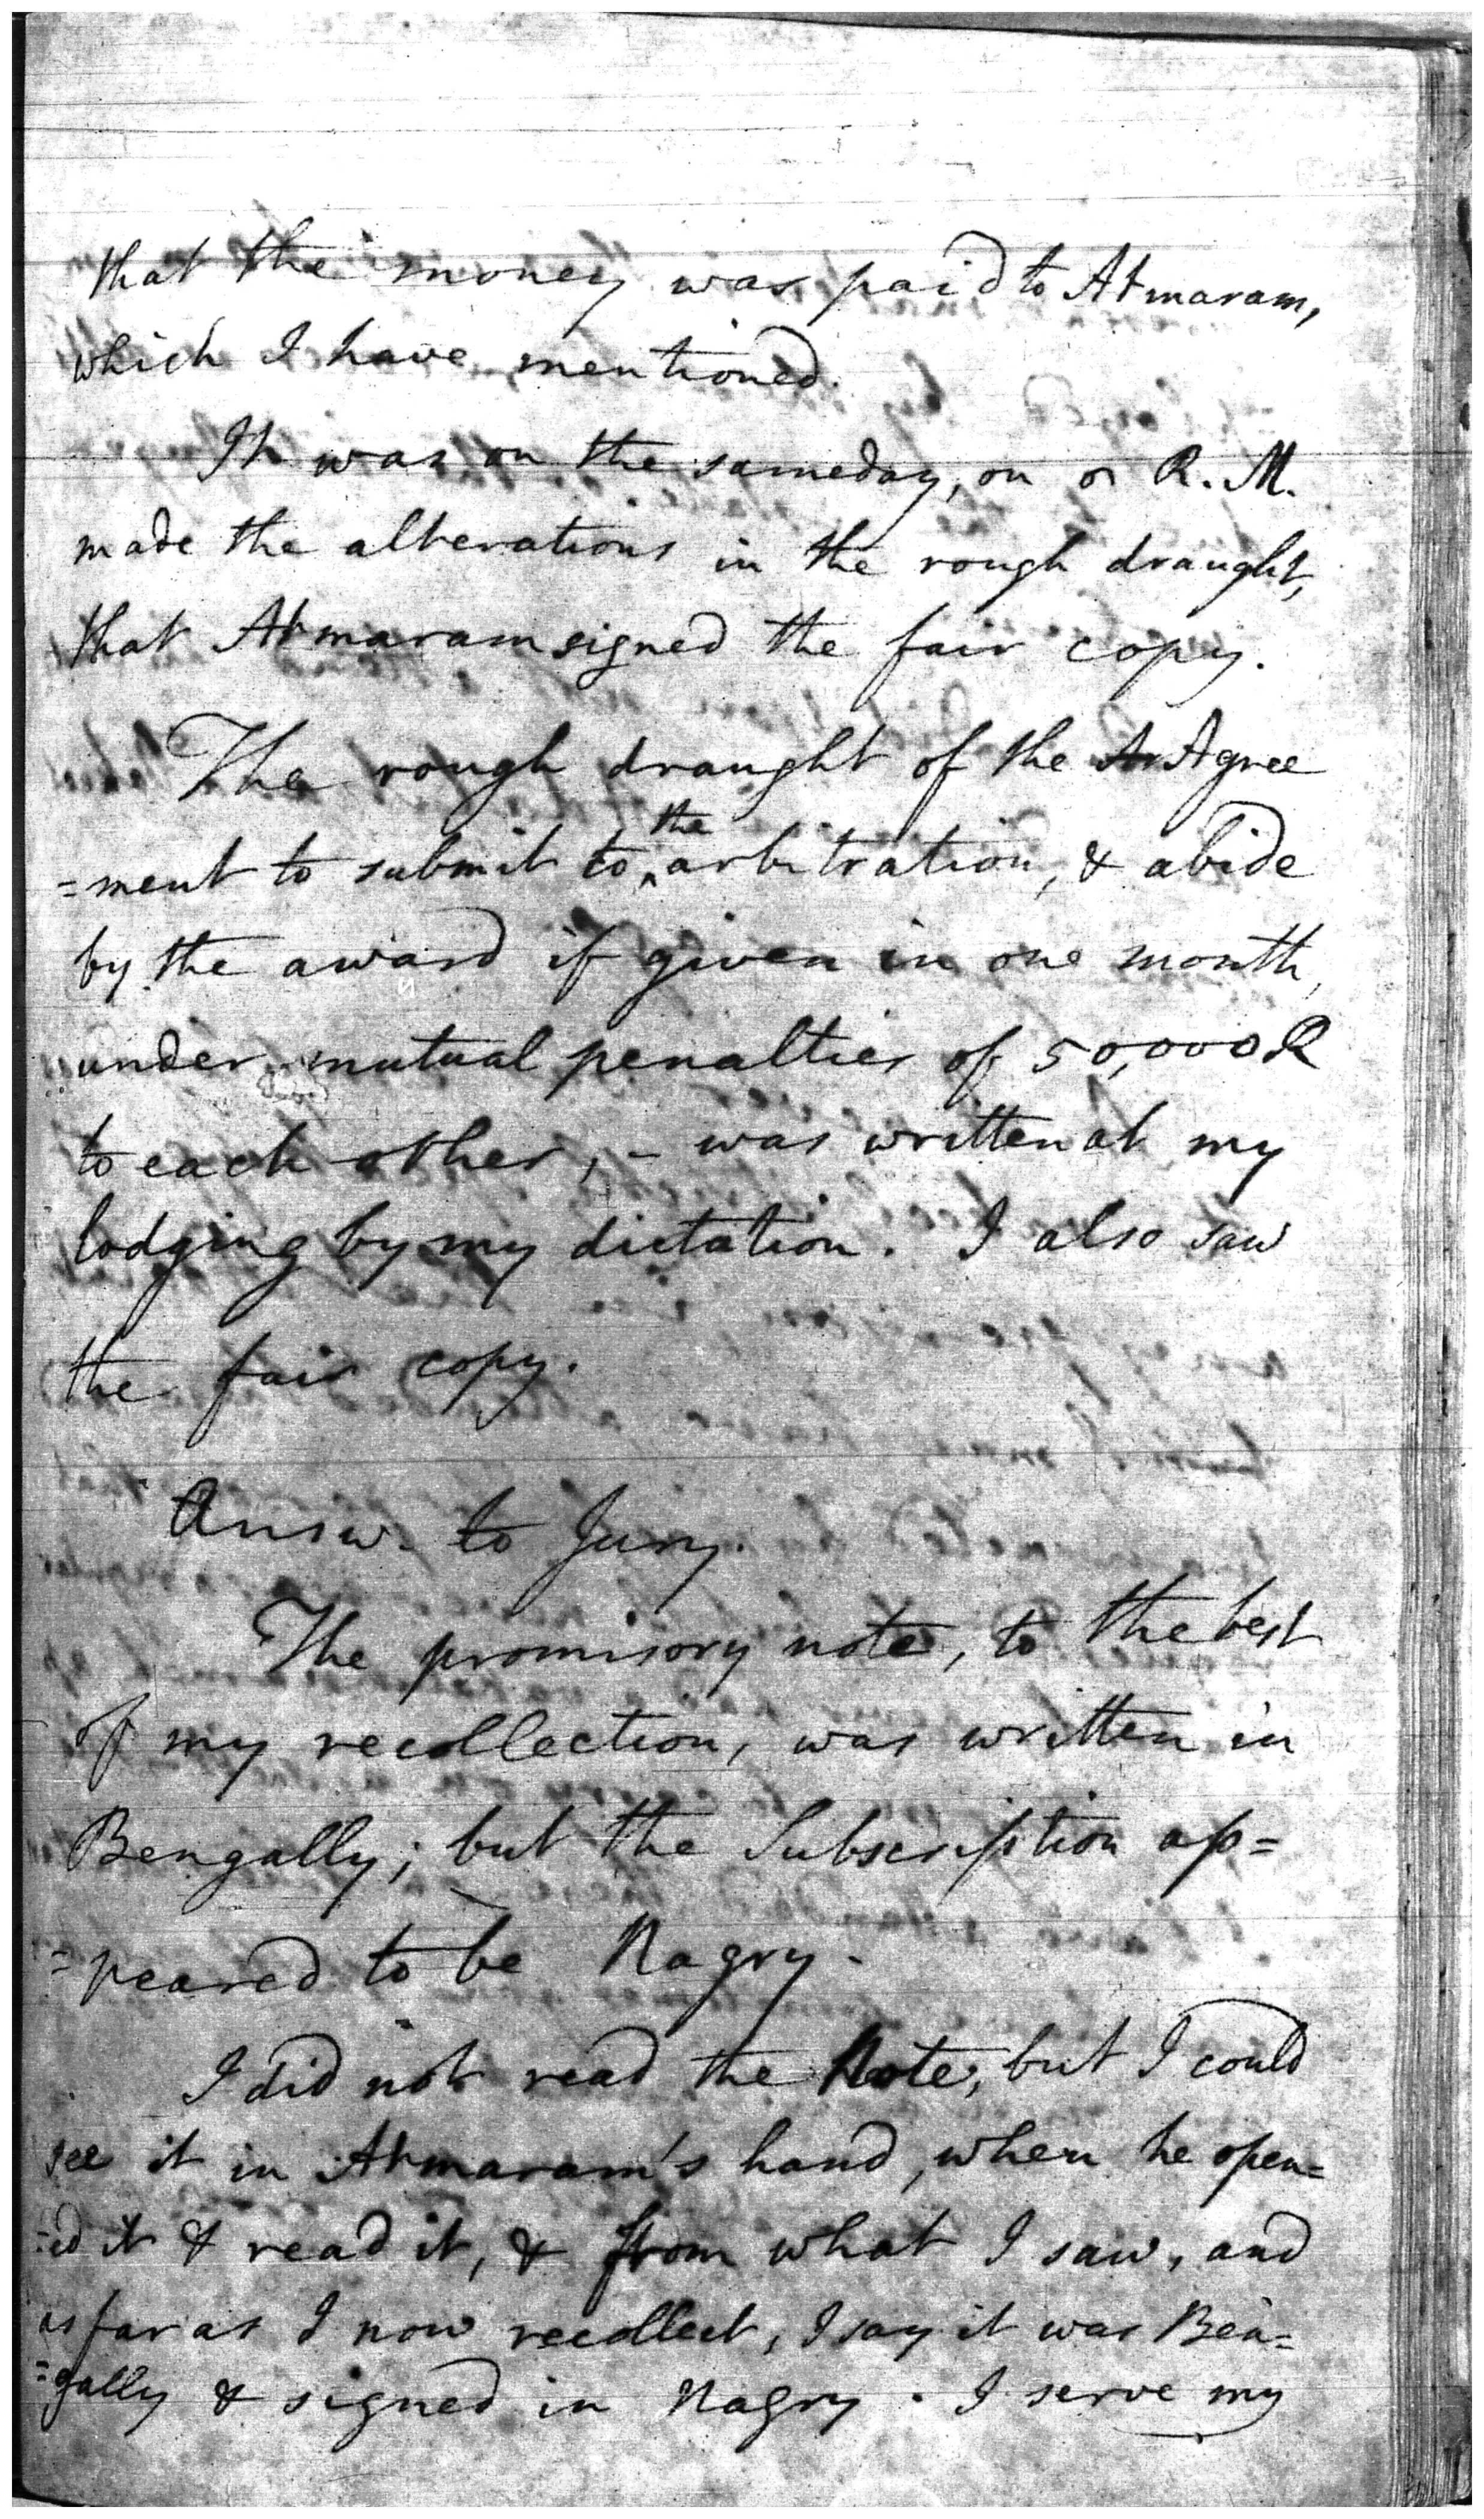 that the money was paid to Atmaram,
which I have mentioned.
It was on the same day, on or R. M.
made the alterations in the rough draught,
that Atmaram signed the fair copy.
The rough draught of the Ar Agree
=ment to submit to the arbitration, & abide
by the award if given in one month,
under mutual penalties of 50,000 R
to each other, - was written at my
lodging by my dictation. I also saw
the fair copy.
Answ. to Jury.
The promisory note, to the best
of my recollection, was written in
Bengally; but the Subscription ap=
=peared to be Nagry.
I did not read the Note, but I could
see it in Atmaram's hand, when he open=
=ed it & read it, & from what I saw, and
as far as I now recollect, I say it was Ben=
=gally & signed in Nagry. I serve my